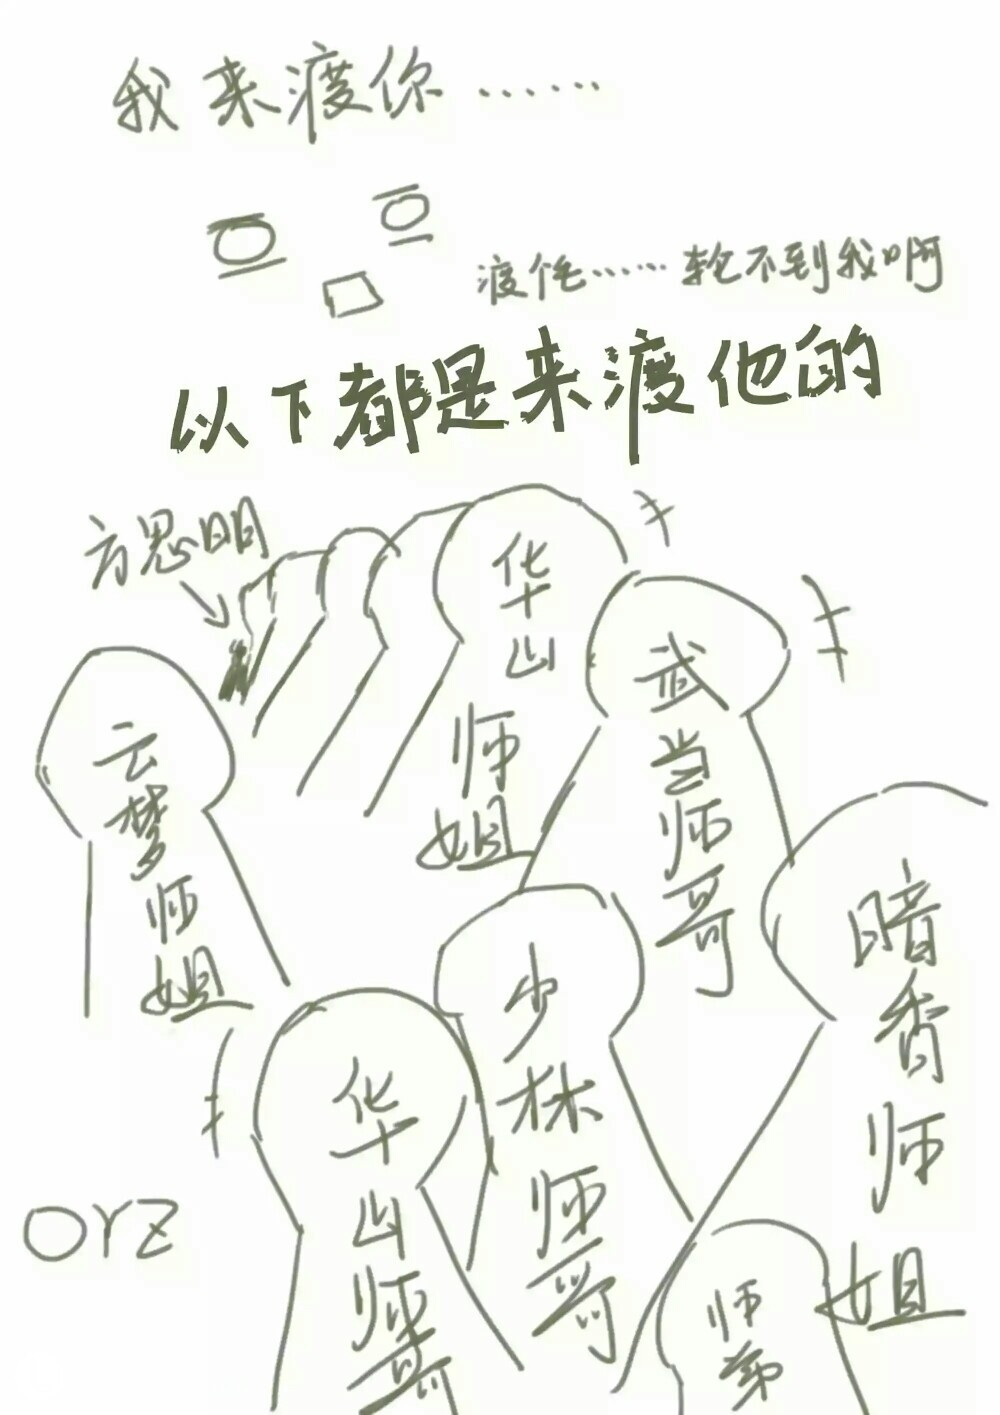 我来渡你……
渡他……轮不到我啊
以下都是来渡他的
方思明
华山师姐
武当师哥
云梦师姐
暗香师姐
少林师哥
华山师哥
orz
师弟